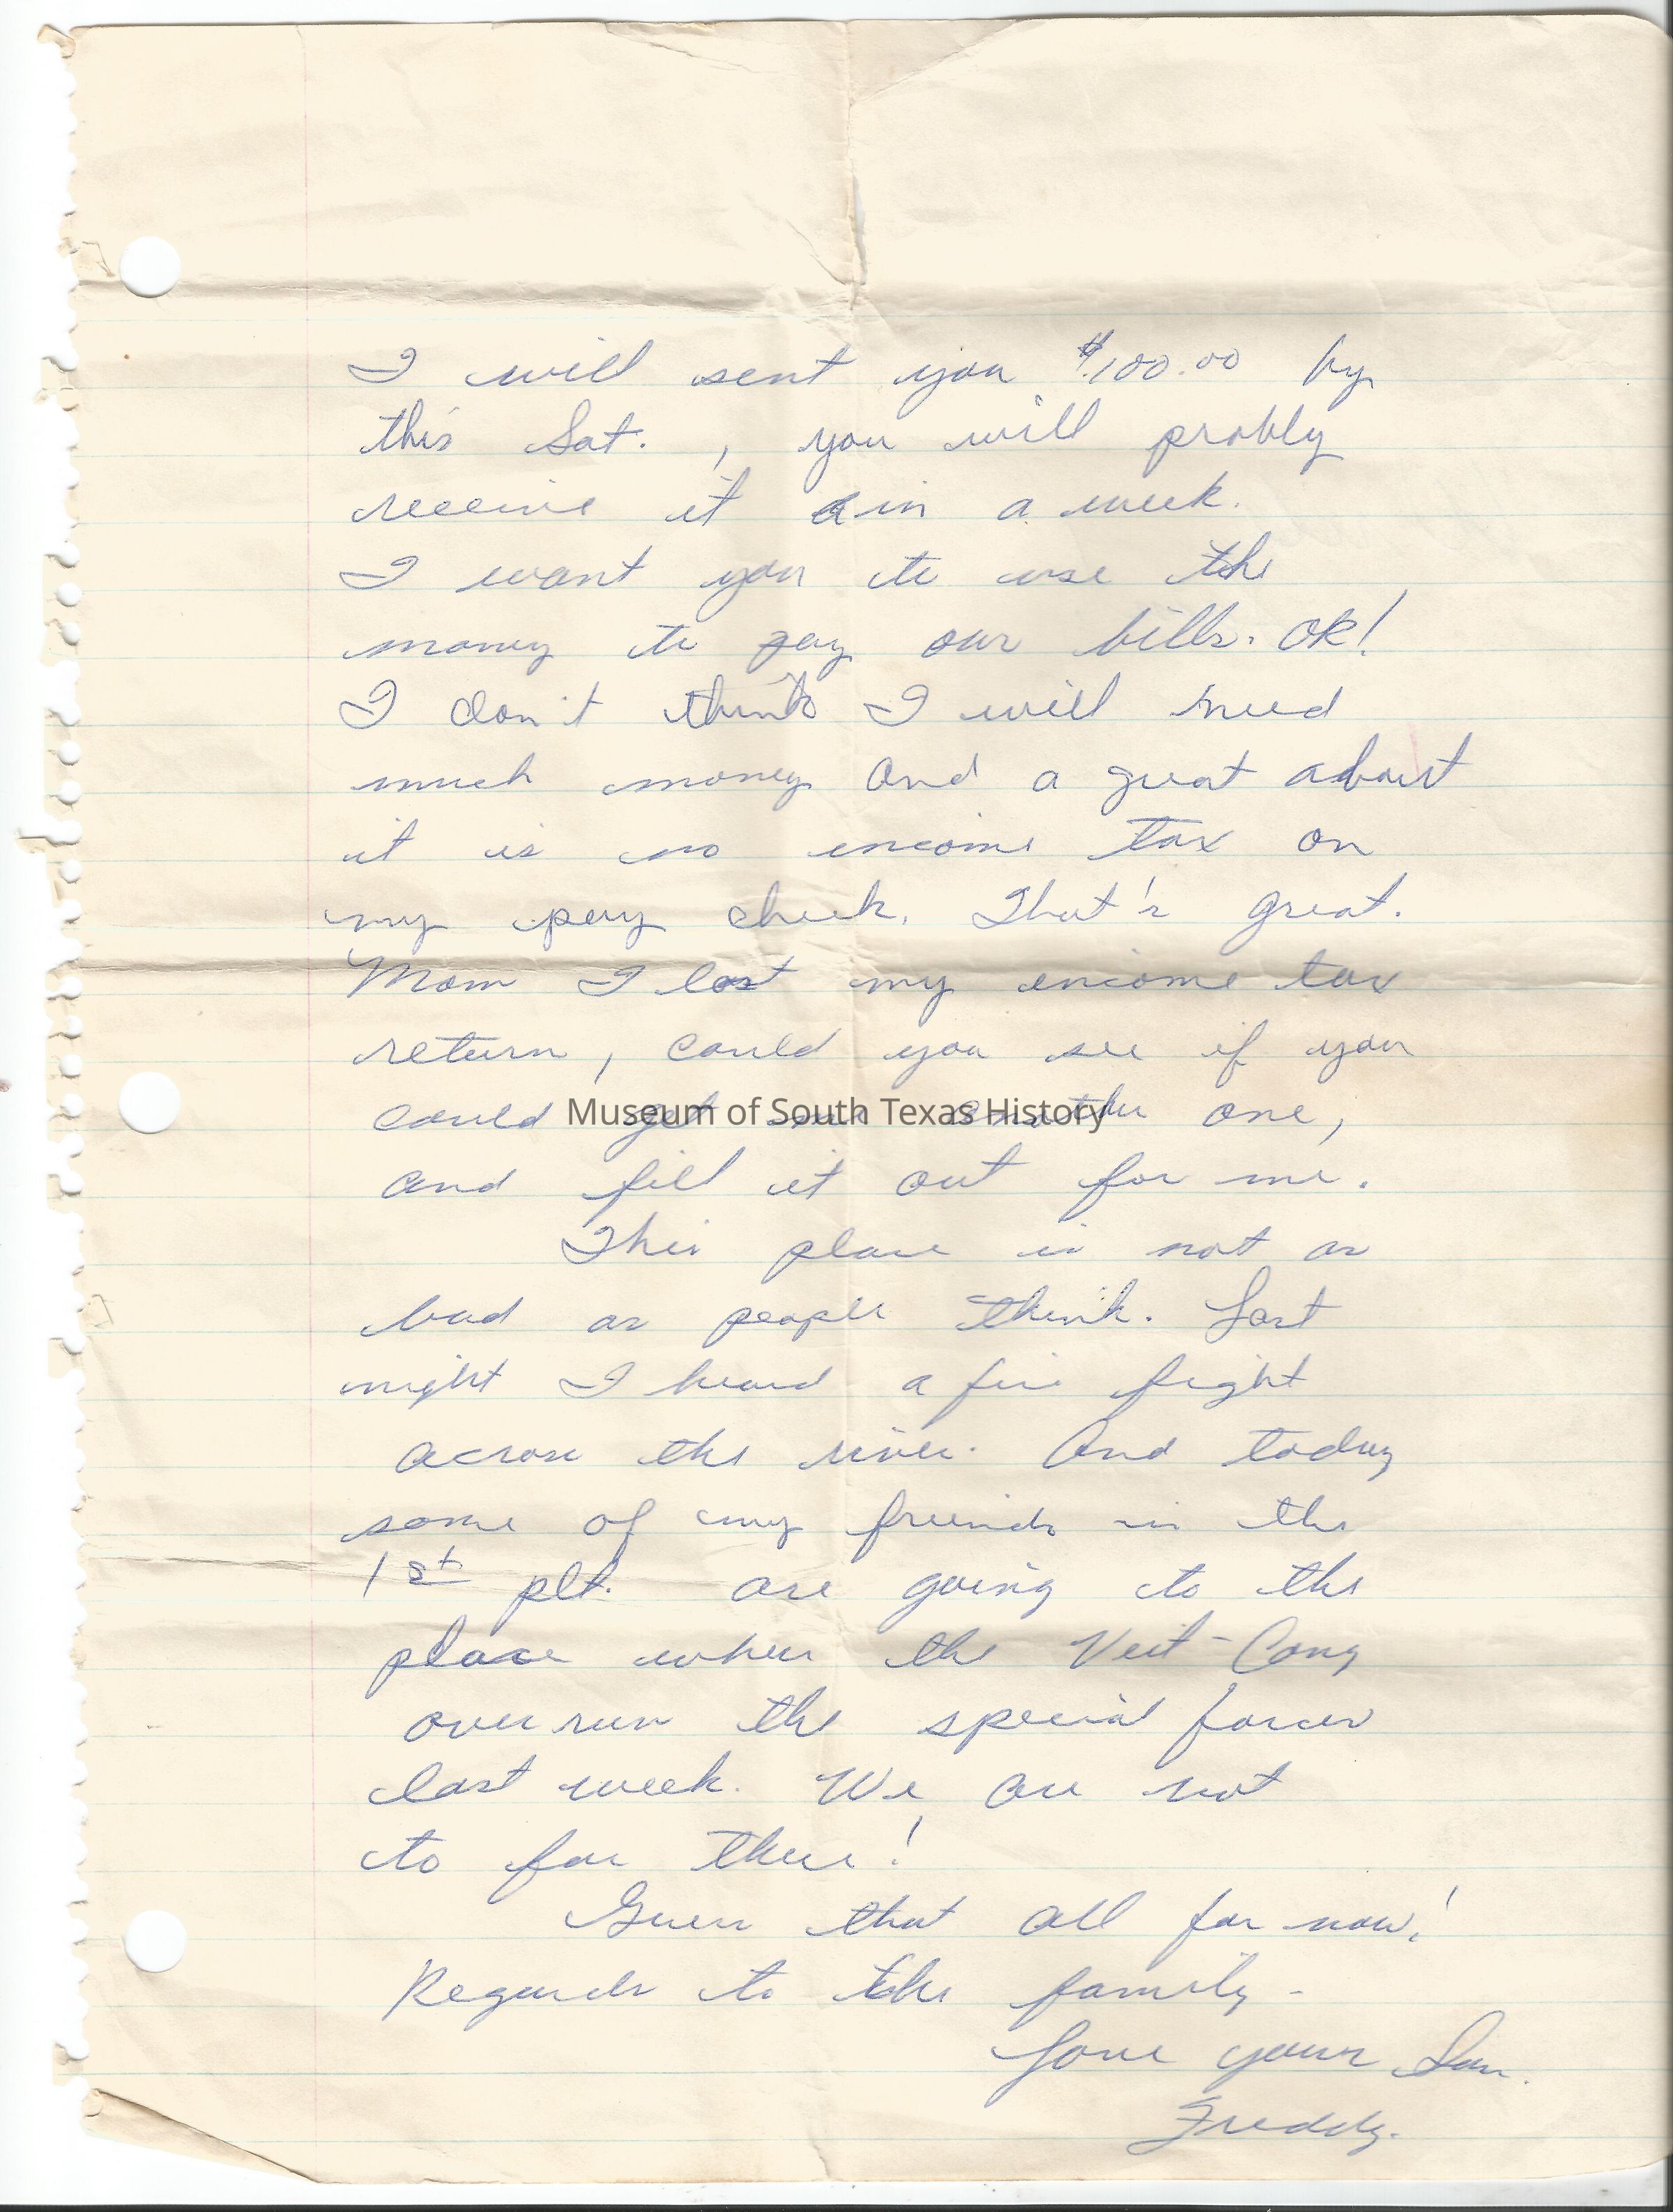 I will sent you $100.00 by
this Sat. , you will probly
receive it in a week.
I want you to use the
money to pay our bills. OK!
I don't think I will need
much money and a great about
it is no income tax on
my pay check. That's great.
Mom I lost my income tax
return, could you see if you
could get me another one,
Museum of South Texas History
and fill it out for me.
This place is not as
bad as people think. Last
night I heard a fire fight
across the river. And today
some of my friends in the
1st plt. are going to the
place where the Veit-Cong
over run the special forces
last week. We are not
to far there!
Guess that all for now!
Regards to the family.
Love your Son.
Freddy.